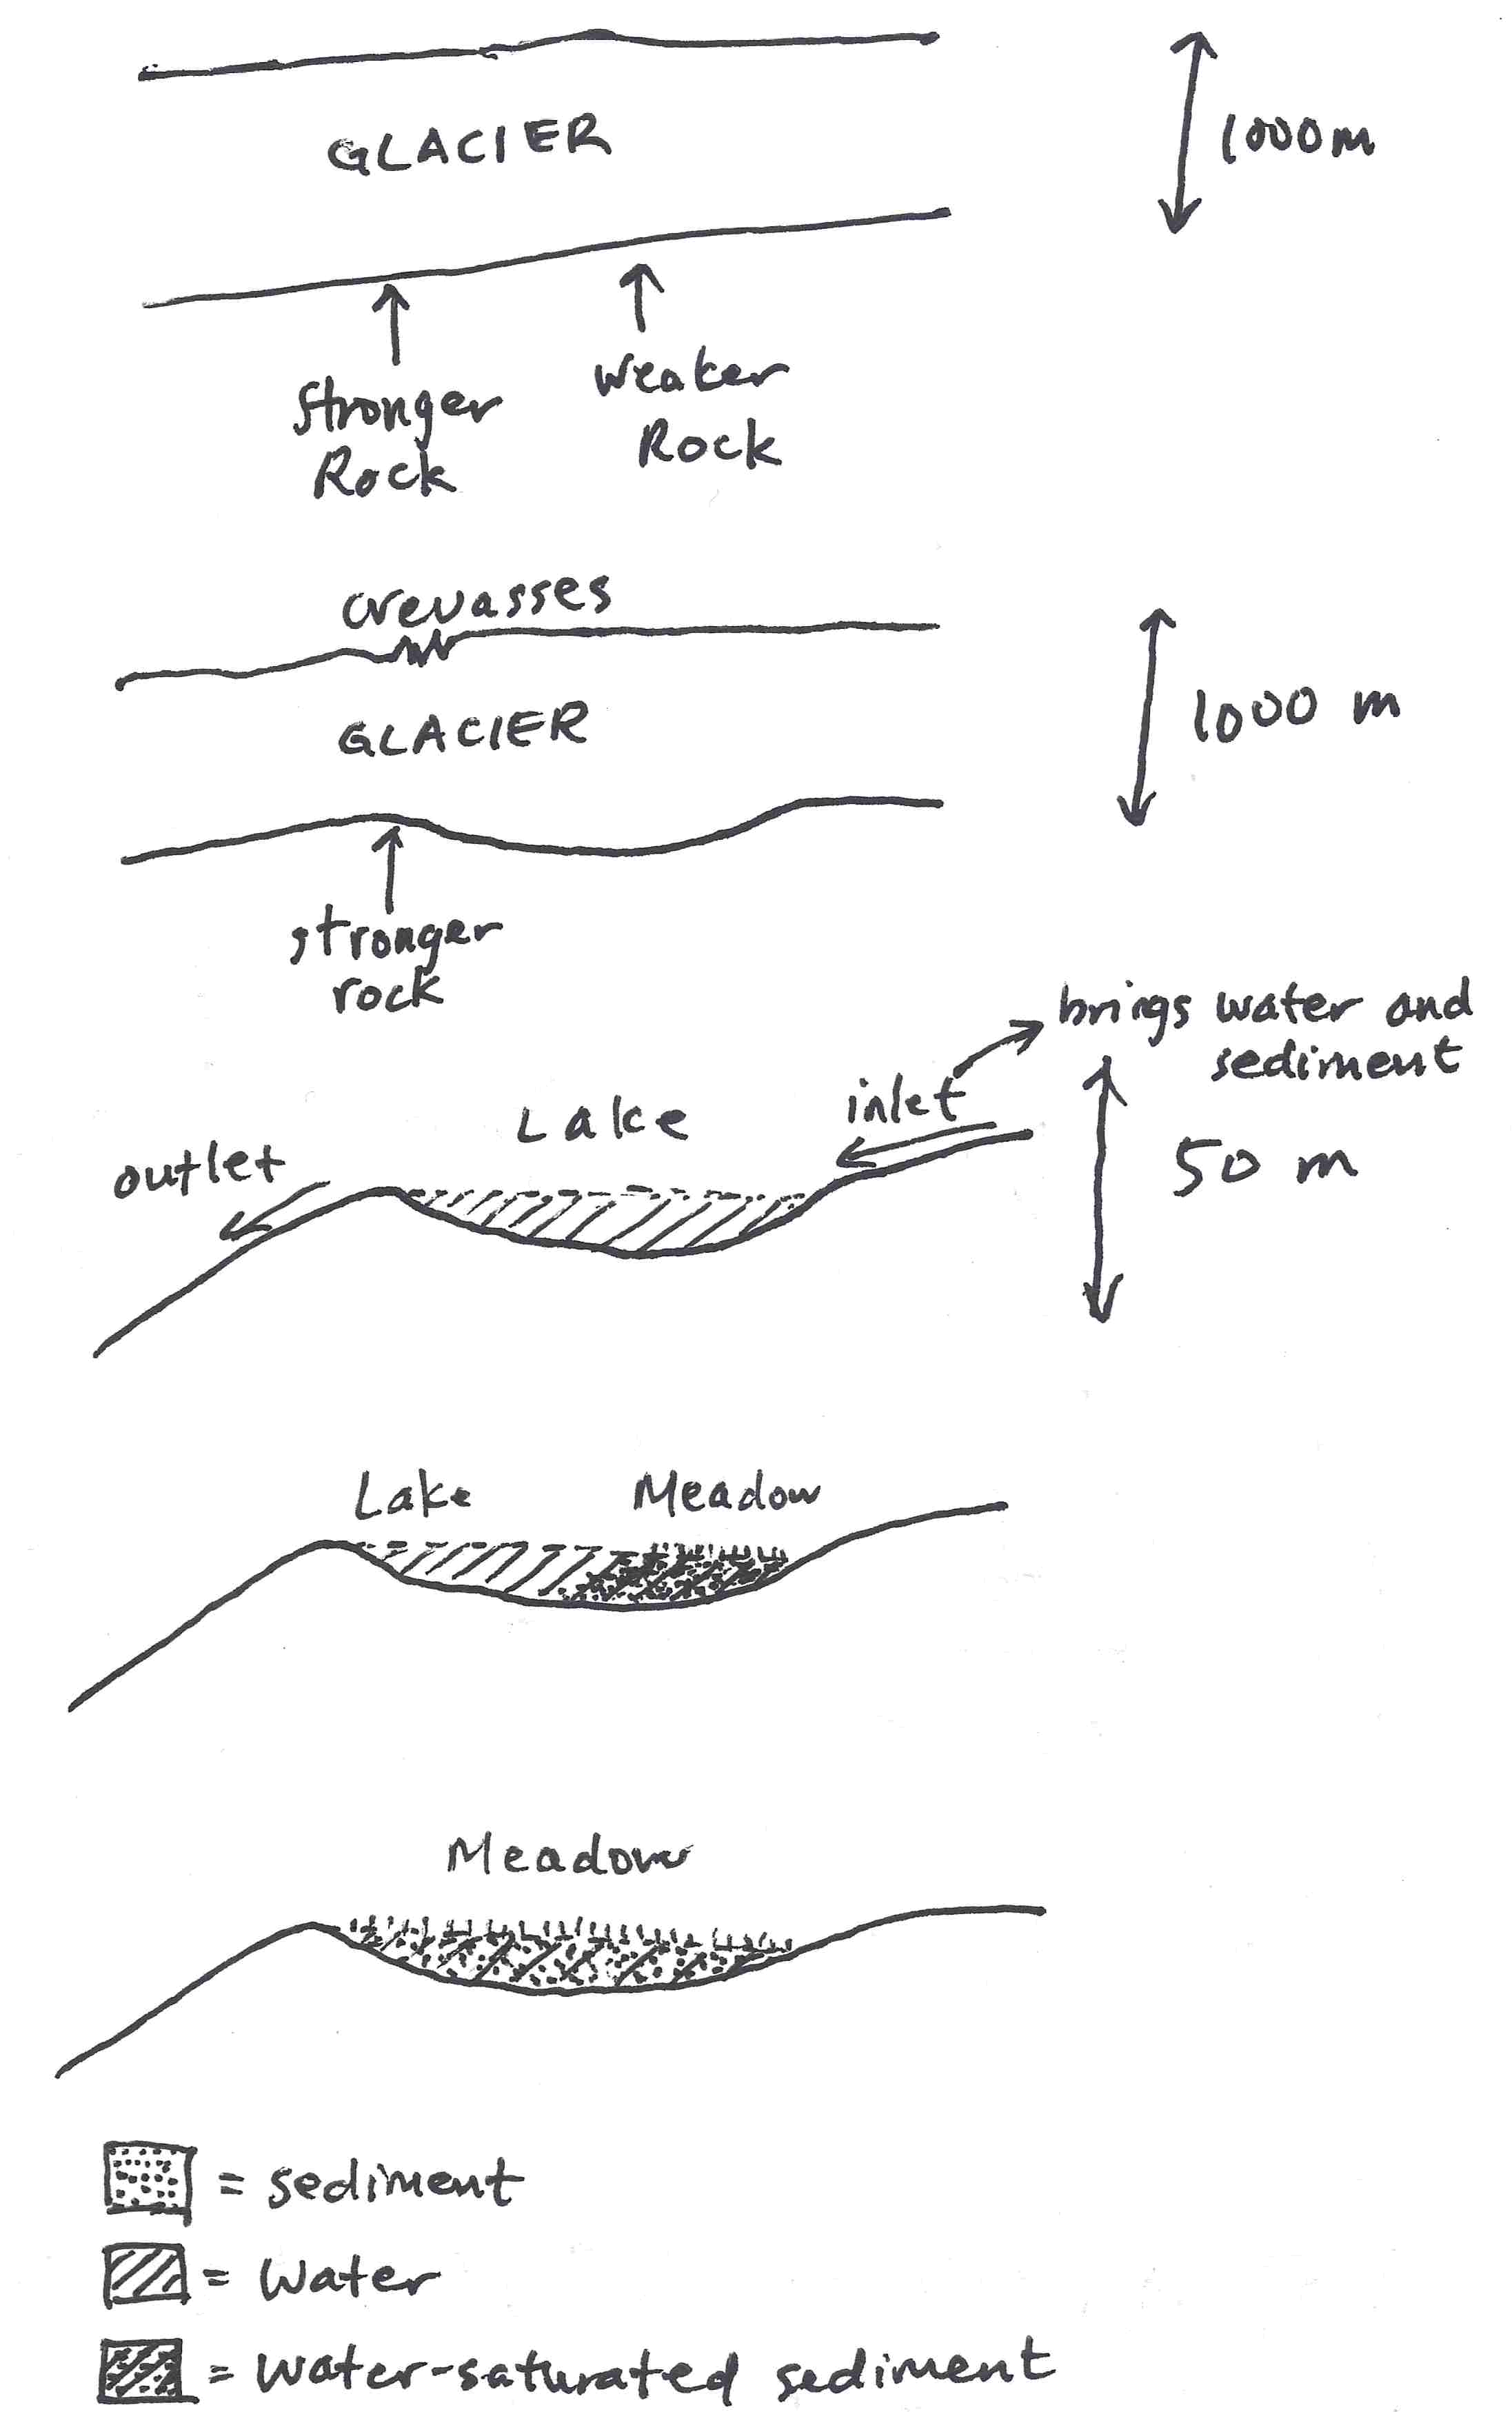 GLACIER
1000m
Stronger
Rock
Weaker
Rock
crevasses
GLACIER
1000 m
stronger
rock
brings water and
sediment
inlet
Lake
outlet
50 m
Lake
Meadow
Meadow
= sediment
= Water
= Water-saturated sediment